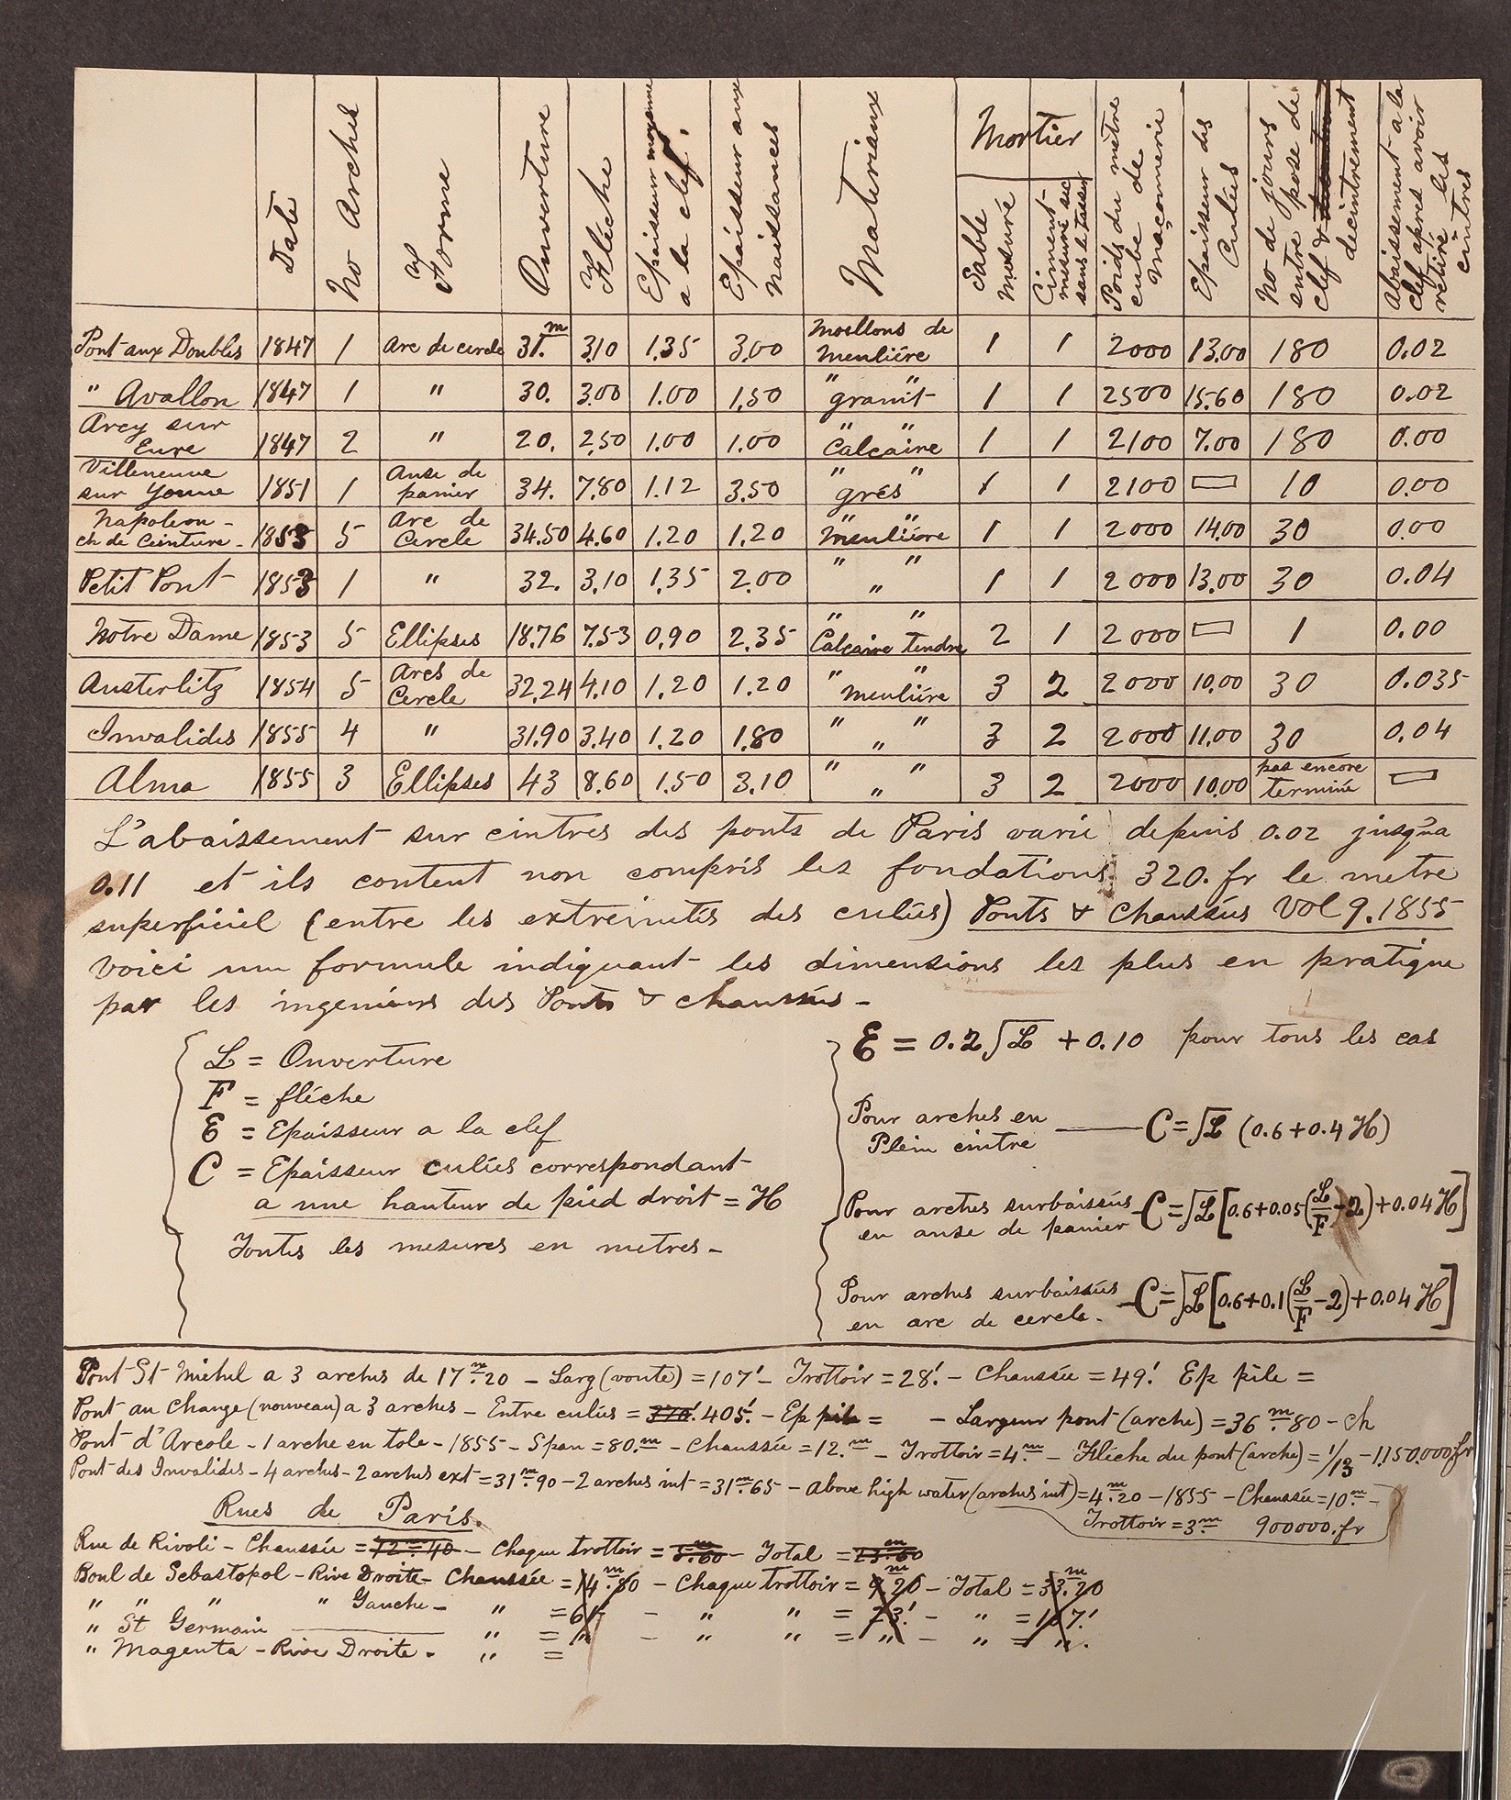 Date
No Arches
Forme
Ouverture
Flèche
Epaisseur moyenne a la clef.
Epaisseur aux naissances
Materiaux
Mortier
Sable mesuré
Ciment mesuré sec sans le tasser
Poids du mètre cube de maçonnerie
Epaisseur des Culées
No de jours entre pose de clef & decintrement
Abaissement a la clef après avoir retiré les cintres
Pont aux Doubles 1847 1 Arc de cercle 31.m 3.10 1.35 3.00 Moellons de Meulière 1 1 2000 13.00 180 0.02
" Avallon 1847 1 " 30. 3.00 1.00 1.50 " granit " 1 1 2500 15.60 180 0.02
Arcy sur Eure 1847 2 " 20. 2.50 1.00 1.00 " Calcaire " 1 1 2100 7.00 180 0.00
Villeneuve sur Yonne 1851 1 Anse de panier 34. 7.80 1.12 3.50 " grés " 1 1 2100 10 0.00
Napoleon - ch de Ceinture - 1853 5 Arc de Cercle 34.50 4.60 1.20 1.20 " Meulière " 1 1 2000 14.00 30 0.00
Petit Pont 1853 1 " 32. 3.10 1.35 2.00 " " " 1 1 2000 13.00 30 0.04
Notre Dame 1853 5 Ellipses 18.76 7.53 0.90 2.35 " " Calcaire tendre 2 1 2000 1 0.00
Austerlitz 1854 5 Arcs de Cercle 32.24 4.10 1.20 1.20 " Meulière " 3 2 2000 10.00 30 0.035
Invalides 1855 4 " 31.90 3.40 1.20 1.80 " " " 3 2 2000 11.00 30 0.04
Alma 1855 3 Ellipses 43 8.60 1.50 3.10 " " " 3 2 2000 10.00 pas encore terminé
L'abaissement sur cintres des ponts de Paris varie depuis 0.02 jusqua
0.11 et ils coutent non compris les fondations 320. fr le metre
superficiel (entre les extremités des culées) Ponts & Chaussées Vol 9. 1855
Voici une formule indiquant les dimensions les plus en pratique
par les ingenieurs des Ponts & chaussées -
L = Ouverture
F = flèche
E = Epaisseur a la clef
C = Epaisseur culées correspondant
a une hauteur de pied droit = H
Toutes les mesures en metres -
E = 0.2√L + 0.10 pour tous les cas
Pour arches en Plein cintre — C = √L (0.6 + 0.4 H)
Pour arches surbaissées en anse de panier - C = √L [0.6 + 0.05 (L/F - 2) + 0.04 H]
Pour arches surbaissées en arc de cercle. - C = √L [0.6 + 0.1 (L/F - 2) + 0.04 H]
Pont St Michel a 3 arches de 17m.20 - Larg (voute) = 107' - Trottoir = 28'. - Chaussée = 49'. Ep pile =
Pont au Change (nouveau) a 3 arches - Entre culées = 370'. 405'. - Ep pile = - Largeur pont (arche) = 36m.80 - ch
Pont d'Arcole - 1 arche en tole - 1855 - Span = 80.m - Chaussée = 12.m - Trottoir = 4.m - Flèche du pont (arche) = 1/13 - 1.150.000 fr
Pont des Invalides - 4 arches - 2 arches ext = 31m.90 - 2 arches int = 31m.65 - above high water (arches int) = 4m.20 - 1855 - Chaussée = 10m -
Trottoir = 3m 900000. fr
Rues de Paris.
Rue de Rivoli - Chaussée = 12m.40 - Chaque trottoir = 5m.60 - Total = 23m.60
Boul de Sebastopol - Rive Droite - Chaussée = 14m.80 - Chaque trottoir = 9m.20 - Total = 33m.20
" " " " Gauche - " = 61' - " " = 23'. - " = 107'.
" St Germain " = " - " " = " - " = ".
" Magenta - Rive Droite - " =